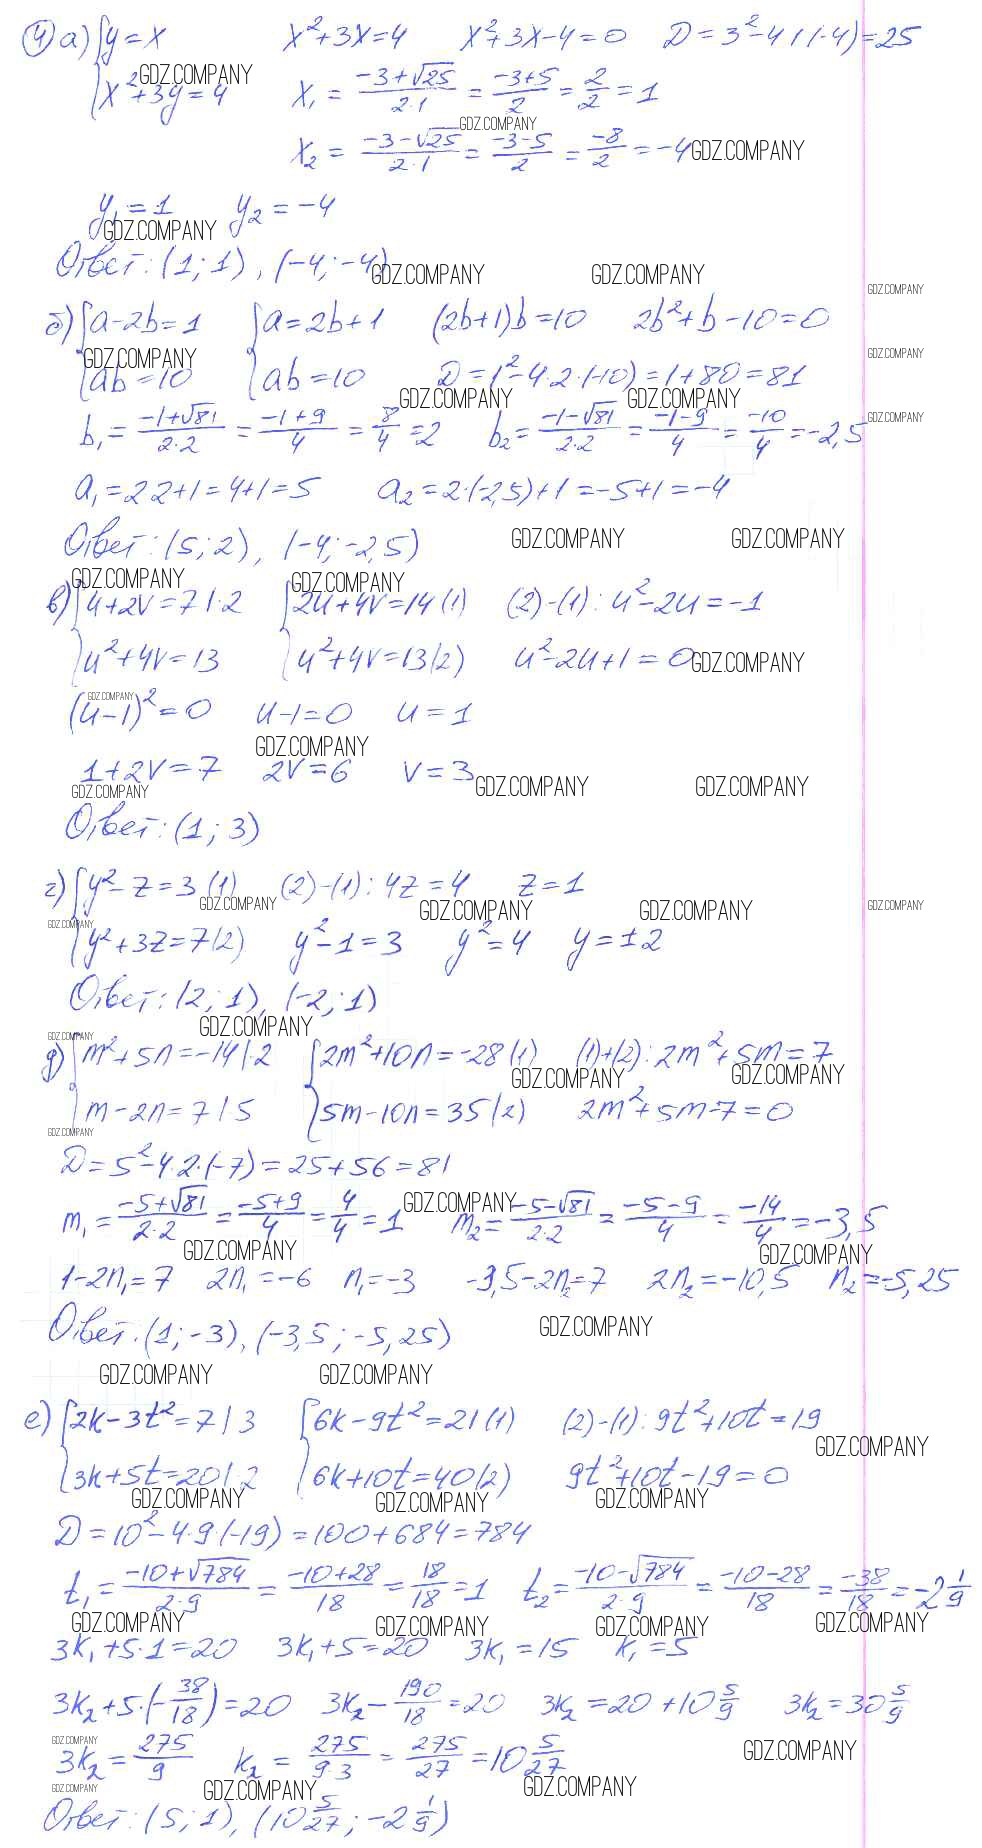 4) а) {y=x x²+3x=4 x²+3x-4=0 D=3²-4·1·(-4)=25
GDZ.COMPANY
{x²+3y=4 x₁ = (-3+√25)/(2·1) = (-3+5)/2 = 2/2 = 1
GDZ.COMPANY
x₂ = (-3-√25)/(2·1) = (-3-5)/2 = -8/2 = -4 GDZ.COMPANY
y₁=1 y₂=-4
GDZ.COMPANY
Ответ: (1; 1), (-4; -4)
GDZ.COMPANY GDZ.COMPANY GDZ.COMPANY
б) {a-2b=1 {a=2b+1 (2b+1)b=10 2b²+b-10=0
GDZ.COMPANY GDZ.COMPANY
{ab=10 {ab=10 D=1²-4·2·(-10)=1+80=81
GDZ.COMPANY GDZ.COMPANY GDZ.COMPANY
b₁ = (-1+√81)/(2·2) = (-1+9)/4 = 8/4 = 2 b₂ = (-1-√81)/(2·2) = (-1-9)/4 = -10/4 = -2,5
a₁=2·2+1=4+1=5 a₂=2·(-2,5)+1=-5+1=-4
Ответ: (5; 2), (-4; -2,5) GDZ.COMPANY GDZ.COMPANY
GDZ.COMPANY GDZ.COMPANY
в) {u+2v=7 |·2 {2u+4v=14 (1) (2)-(1): u²-2u=-1
{u²+4v=13 {u²+4v=13 (2) u²-2u+1=0 GDZ.COMPANY
GDZ.COMPANY
(u-1)²=0 u-1=0 u=1
GDZ.COMPANY
1+2v=7 2v=6 v=3
GDZ.COMPANY GDZ.COMPANY GDZ.COMPANY
Ответ: (1; 3)
г) {y²-z=3 (1) (2)-(1): 4z=4 z=1
GDZ.COMPANY GDZ.COMPANY GDZ.COMPANY GDZ.COMPANY
GDZ.COMPANY
{y²+3z=7 (2) y²-1=3 y²=4 y=±2
Ответ: (2; 1), (-2; 1)
GDZ.COMPANY
GDZ.COMPANY
д) {m²+5n=-14 |·2 {2m²+10n=-28 (1) (1)+(2): 2m²+5m=7
GDZ.COMPANY GDZ.COMPANY
{m-2n=7 |·5 {5m-10n=35 (2) 2m²+5m-7=0
GDZ.COMPANY
D=5²-4·2·(-7)=25+56=81
m₁ = (-5+√81)/(2·2) = (-5+9)/4 = 4/4 = 1 GDZ.COMPANY m₂ = (-5-√81)/(2·2) = (-5-9)/4 = -14/4 = -3,5
GDZ.COMPANY GDZ.COMPANY
1-2n₁=7 2n₁=-6 n₁=-3 -3,5-2n₂=7 2n₂=-10,5 n₂=-5,25
Ответ: (1; -3), (-3,5; -5,25) GDZ.COMPANY
GDZ.COMPANY GDZ.COMPANY
е) {2k-3t²=7 |·3 {6k-9t²=21 (1) (2)-(1): 9t²+10t=19
GDZ.COMPANY
{3k+5t=20 |·2 {6k+10t=40 (2) 9t²+10t-19=0
GDZ.COMPANY GDZ.COMPANY GDZ.COMPANY
D=10²-4·9·(-19)=100+684=784
t₁ = (-10+√784)/(2·9) = (-10+28)/18 = 18/18 = 1 t₂ = (-10-√784)/(2·9) = (-10-28)/18 = -38/18 = -2 1/9
GDZ.COMPANY GDZ.COMPANY GDZ.COMPANY GDZ.COMPANY
3k₁+5·1=20 3k₁+5=20 3k₁=15 k₁=5
3k₂+5·(-38/18)=20 3k₂-190/18=20 3k₂=20+10 5/9 3k₂=30 5/9
GDZ.COMPANY GDZ.COMPANY
3k₂=275/9 k₂ = 275/(9·3) = 275/27 = 10 5/27
GDZ.COMPANY GDZ.COMPANY GDZ.COMPANY
Ответ: (5; 1), (10 5/27; -2 1/9)